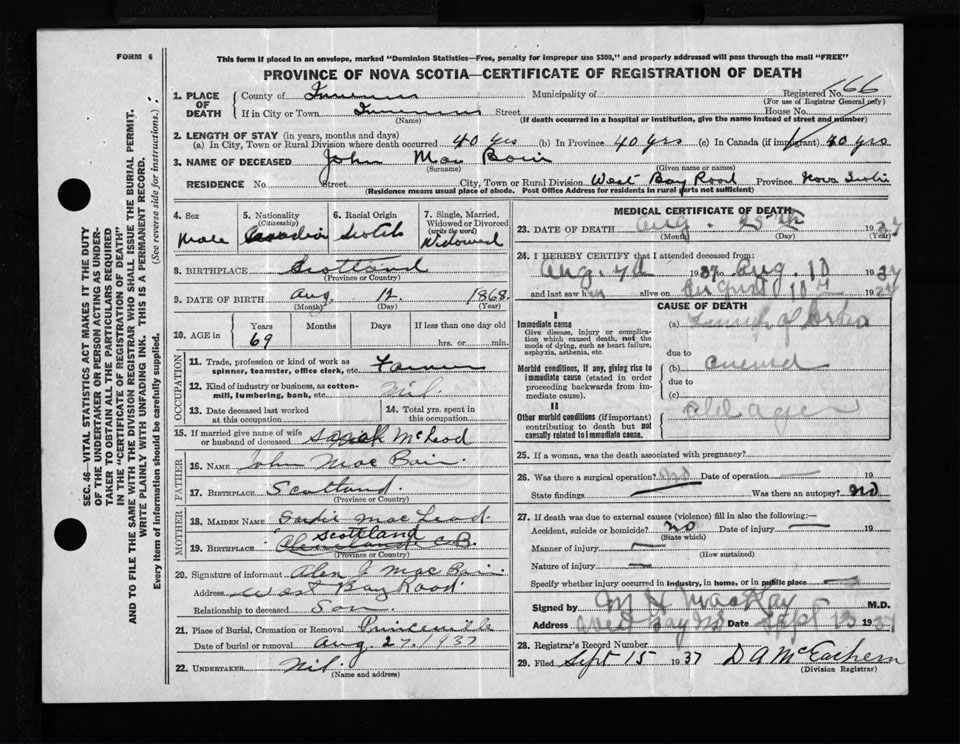 FORM 6
This form if placed in an envelope, marked "Dominion Statistics—Free, penalty for improper use $300," and properly addressed will pass through the mail "FREE"
PROVINCE OF NOVA SCOTIA—CERTIFICATE OF REGISTRATION OF DEATH
SEC. 46—VITAL STATISTICS ACT MAKES IT THE DUTY
OF THE UNDERTAKER OR PERSON ACTING AS UNDER-
TAKER TO OBTAIN ALL THE PARTICULARS REQUIRED
IN THE "CERTIFICATE OF REGISTRATION OF DEATH"
AND TO FILE THE SAME WITH THE DIVISION REGISTRAR WHO SHALL ISSUE THE BURIAL PERMIT.
WRITE PLAINLY WITH UNFADING INK. THIS IS A PERMANENT RECORD.
Every item of information should be carefully supplied. (See reverse side for instructions.)
1. PLACE OF DEATH
County of Inverness Municipality of Registered No. 666
(For use of Registrar General only)
If in City or Town Inverness Street House No.
(Name) (If death occurred in a hospital or institution, give the name instead of street and number)
2. LENGTH OF STAY (in years, months and days)
(a) In City, Town or Rural Division where death occurred 40 yrs (b) In Province 40 yrs (c) In Canada (if immigrant) 40 yrs
3. NAME OF DECEASED John Mac Bain
(Surname) (Given name or names)
RESIDENCE No. Street City, Town or Rural Division West Bay Road Province Nova Scotia
(Residence means usual place of abode. Post Office Address for residents in rural parts not sufficient)
4. Sex Male
5. Nationality (Citizenship) Canadian
6. Racial Origin Scotch
7. Single, Married, Widowed or Divorced (write the word) Widowed
8. BIRTHPLACE Scotland
(Province or Country)
9. DATE OF BIRTH Aug. 12 1868
(Month) (Day) (Year)
10. AGE in Years 69 Months Days If less than one day old
hrs. or min.
OCCUPATION
11. Trade, profession or kind of work as spinner, teamster, office clerk, etc. Farmer
12. Kind of industry or business, as cotton-mill, lumbering, bank, etc. Nil
13. Date deceased last worked at this occupation
14. Total yrs. spent in this occupation
15. If married give name of wife or husband of deceased Sarah McLeod
FATHER
16. Name John Mac Bain
17. Birthplace Scotland.
(Province or Country)
MOTHER
18. Maiden Name Sadie MacLeod
Scotland
19. Birthplace C.B.
(Province or Country)
20. Signature of informant Alex J. MacBain
Address West Bay Road
Relationship to deceased Son.
21. Place of Burial, Cremation or Removal Princeville
Date of burial or removal Aug. 27, 1937
22. UNDERTAKER Nil.
(Name and address)
MEDICAL CERTIFICATE OF DEATH
23. DATE OF DEATH Aug. 25th 1937
(Month) (Day) (Year)
24. I HEREBY CERTIFY that I attended deceased from:
Aug. 7th 1937 to Aug. 10 1937
and last saw him alive on August 10th 1937
CAUSE OF DEATH
I
Immediate cause
Give disease, injury or complication which caused death, not the mode of dying, such as heart failure, asphyxia, asthenia, etc
(a)
due to
Morbid conditions, if any, giving rise to immediate cause (stated in order proceeding backwards from immediate cause).
(b)
due to
(c)
II
Other morbid conditions (if important) contributing to death but not causally related to immediate cause.
old age
25. If a woman, was the death associated with pregnancy?
26. Was there a surgical operation? No Date of operation — 19
State findings — Was there an autopsy? No
27. If death was due to external causes (violence) fill in also the following:—
Accident, suicide or homicide? No Date of injury — 19
(State which)
Manner of injury —
(How sustained)
Nature of injury —
Specify whether injury occurred in industry, in home, or in public place —
Signed by M H MacKay M.D.
Address West Bay NS Date Sept 13 1937
28. Registrar's Record Number
29. Filed Sept 15 1937 D A McEachern
(Division Registrar)